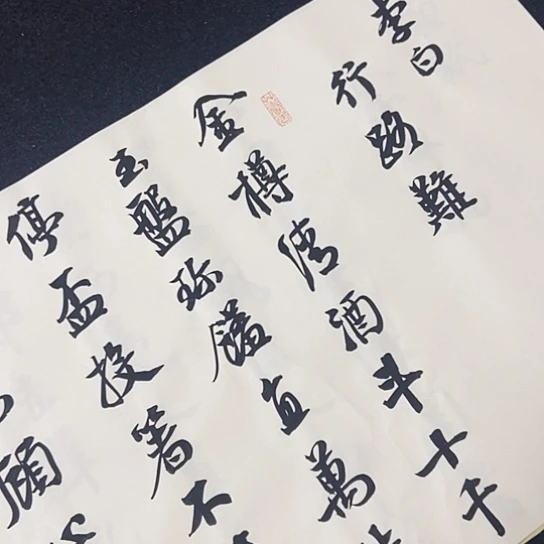 李白
行路難
金樽清酒斗十千
玉盤珎饈直萬
停盃投箸不
顧